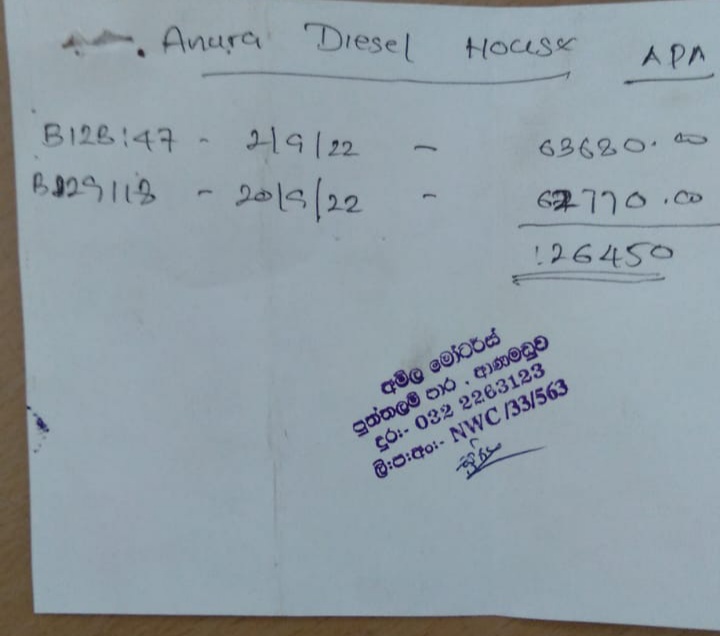 Anura Diesel House APA
B128147 - 2/9/22 - 63680.00
B129118 - 20/9/22 - 62770.00
126450
අමිල මෝටර්ස්
පුත්තලම් පාර . ආණමඩුව
දුර:- 032 2263123
ලි:ප:අං:- NWC/33/563